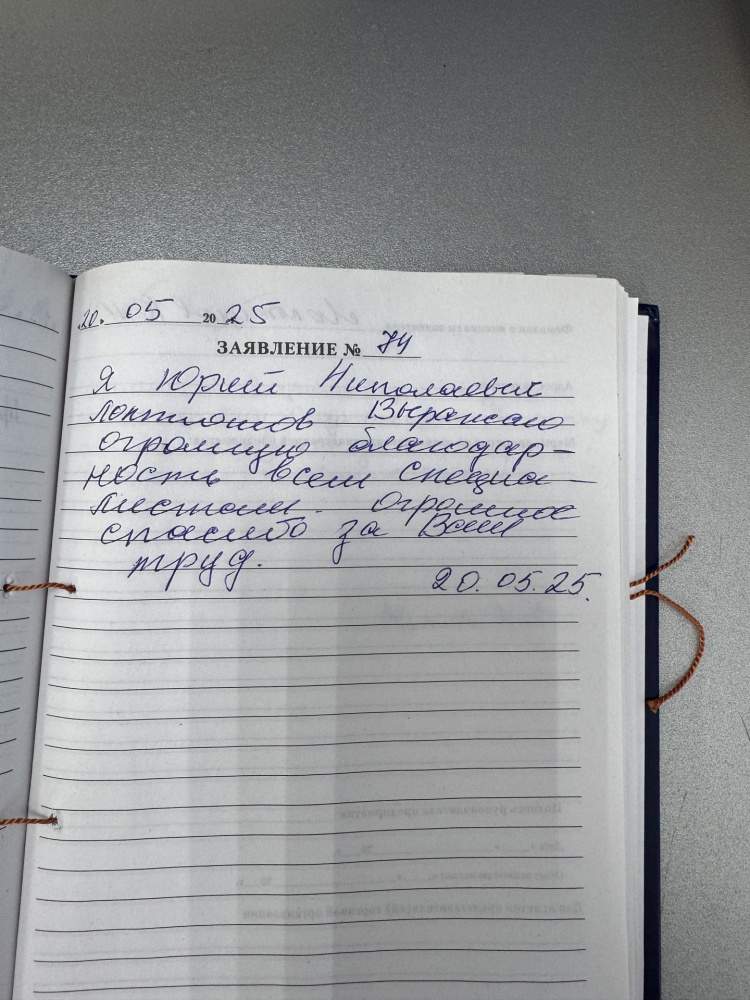 20. 05 2025
ЗАЯВЛЕНИЕ № 74
Я Юрий Николаевич
Выражаю
огромную благодар-
ность всем специа-
листам. огромное
спасибо за Ваш
труд.
20.05.25.